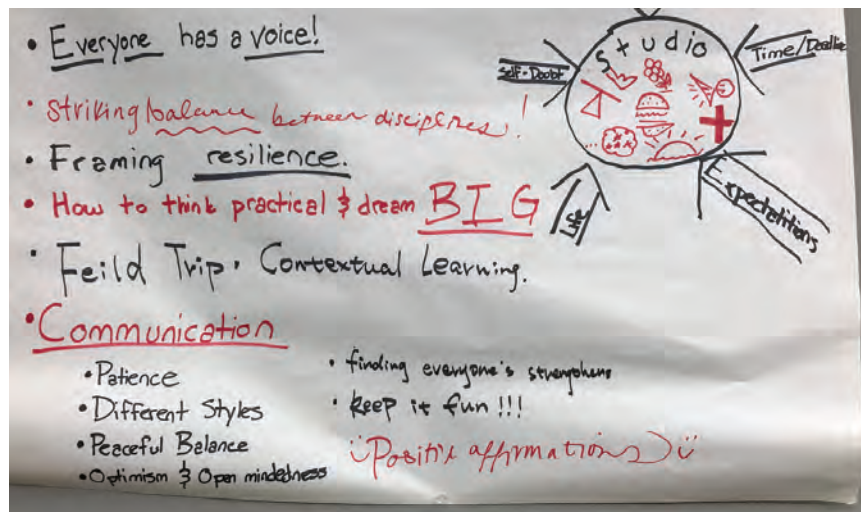 • Everyone has a voice!
• Striking balance between disciplines!
• Framing resilience.
• How to think practical & dream BIG
• Feild Trip. Contextual Learning.
• Communication
• Patience
• Different Styles
• Peaceful Balance
• Optimism & Open mindedness
• finding everyone's
• keep it fun !!!
Positive affirmations
Studio
Self-Doubt
Time/Deadline
Life